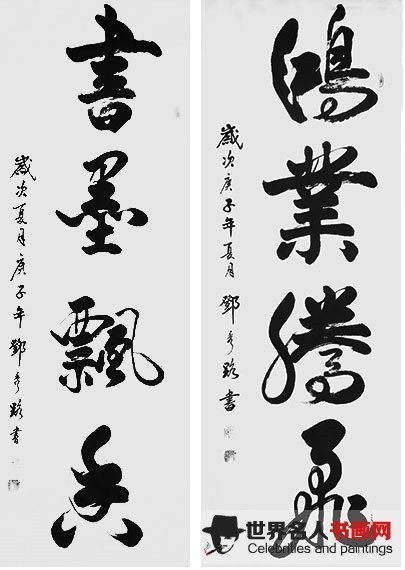 鴻業騰飛
歲次庚子年夏月 鄧路書
書墨飄香
歲次夏月庚子年 鄧路書
世界名人书画网
Celebrities and paintings